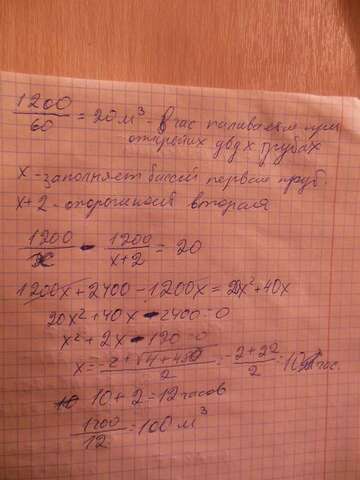 1200/60 = 20 м³ - в час наливается при
открытых двух трубах
x - заполняет бассей первая труб.
x+2 - вторая
1200/x - 1200/x+2 = 20
1200x + 2400 - 1200x = 20x² + 40x
20x² + 40x - 2400 = 0
x² + 2x - 120 = 0
x = -2+√4+480/2 = -2+22/2 = 10 час.
10 + 2 = 12 часов
1200/12 = 100 м³